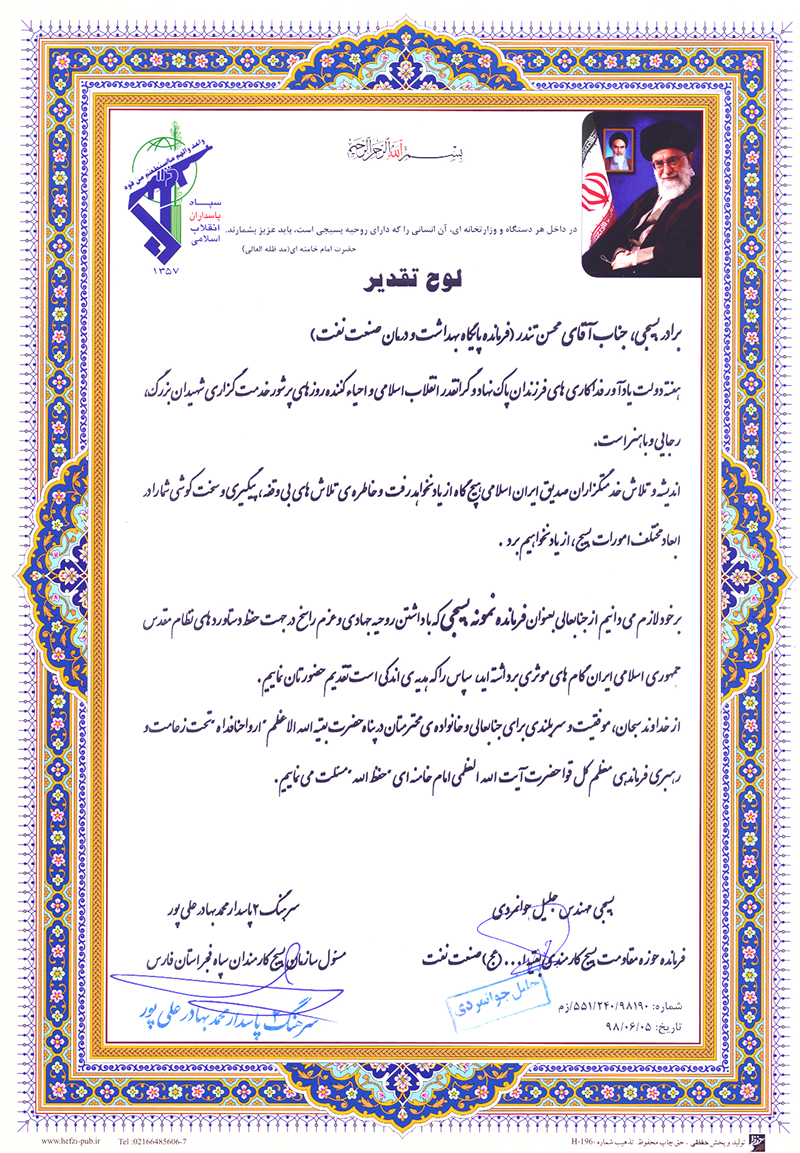 بسم الله الرحمن الرحیم
واعدوا لهم ما استطعتم من قوة
سپاه
پاسداران
انقلاب
اسلامی
۱۳۵۷
در داخل هر دستگاه و وزارتخانه ای، آن انسانی را که دارای روحیه بسیجی است، باید عزیز بشمارند.
حضرت امام خامنه ای(مد ظله العالی)
لوح تقدیر
برادر بسیجی، جناب آقای محسن تندر (فرمانده پایگاه بهداشت و درمان صنعت نفت)
هفته دولت یادآور فداکاری های فرزندان پاک نهاد و گرانقدر انقلاب اسلامی و احیاء کننده روزهای پرشور خدمت گزاری شهیدان بزرگ،
رجایی و باهنر است.
اندیشه و تلاش خدمتگزاران صدیق ایران اسلامی هیچ گاه از یاد نخواهد رفت و خاطره ی تلاش های بی وقفه، پیگیری و سخت کوشی شما را در
ابعاد مختلف امورات بسیج، از یاد نخواهیم برد .
بر خود لازم می دانیم از جنابعالی بعنوان فرمانده نمونه بسیجی که با داشتن روحیه جهادی و عزم راسخ در جهت حفظ دستاوردهای نظام مقدس
جمهوری اسلامی ایران گام های موثری برداشته اید، سپاس را که هدیه ی اندکی است تقدیم حضورتان نماییم.
از خداوند سبحان، موفقیت و سربلندی برای جنابعالی و خانواده ی محترمتان در پناه حضرت بقیه الله الاعظم "ارواحنا فداه" تحت زعامت و
رهبری فرماندهی معظم کل قوا حضرت آیت الله العظمی امام خامنه ای "حفظ الله" مسئلت می نماییم.
بسیجی مهندس جلیل جوانمردی
فرمانده حوزه مقاومت بسیج کارمندی بقیه ا... (عج) صنعت نفت
جلیل جوانمردی
سرهنگ ۲ پاسدار محمد بهادر علی پور
مسئول سازمان بسیج کارمندان سپاه فجر استان فارس
سرهنگ ۲ پاسدار محمد بهادر علی پور
شماره: ۵۵۱/۲۴۰/۹۸۱۹۰/زم
تاریخ: ۹۸/۰۶/۰۵
حفظی تولید و پخش حفظی . حق چاپ محفوظ. تذهیب شماره H-196
Tel :02166485606-7
www.hefzi-pub.ir